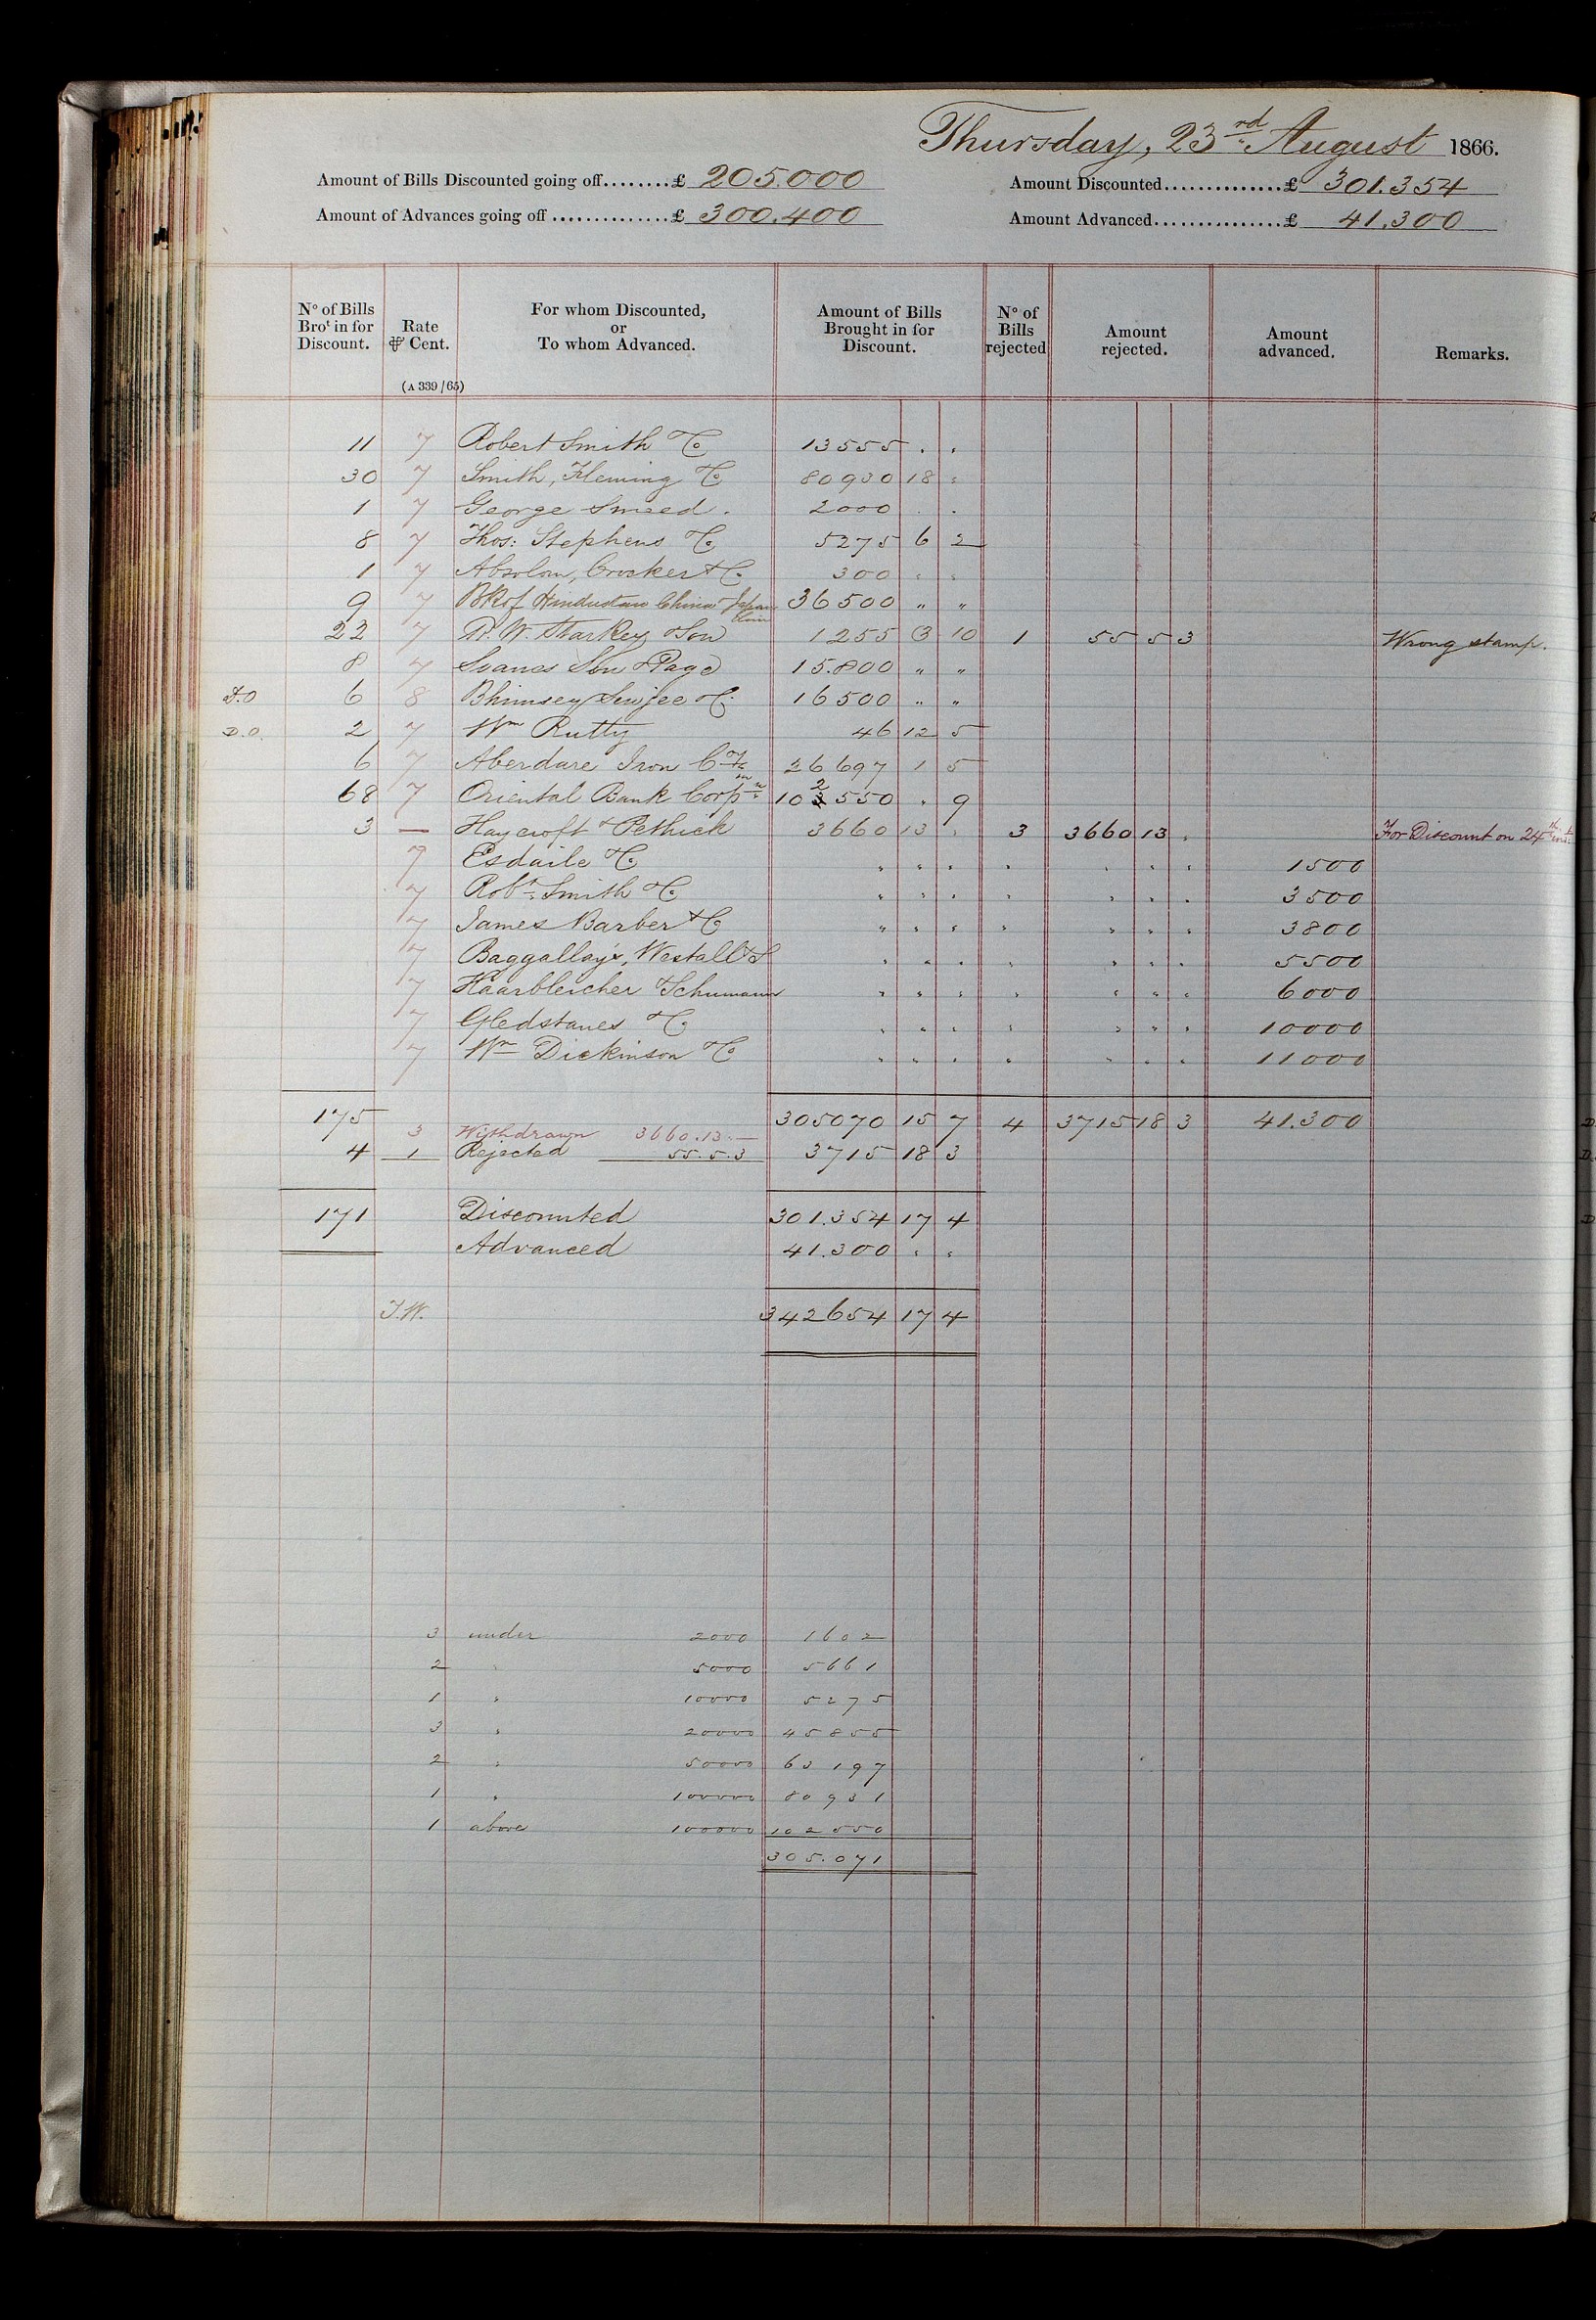 Thursday, 23rd August 1866.
Amount of Bills Discounted going off........£ 205.000 Amount Discounted..............£ 301.354
Amount of Advances going off ..............£ 300.400 Amount Advanced...............£ 41.300
No of Bills Brot in for Discount. Rate ⅌ Cent. (A 339/65) For whom Discounted, or To whom Advanced. Amount of Bills Brought in for Discount. No of Bills rejected Amount rejected. Amount advanced. Remarks.
11 7 Robert Smith & Co 13555 . .
30 7 Smith, Fleming & Co 80930 18 "
1 7 George Smeed . 2000 . .
8 7 Thos: Stephens & Co 5275 6 2
1 7 Absolom, Crocker & Co 300 " "
9 7 Bk of Hindustan China & Japan 36500 " "
22 7 R. W. Starkey & Son 1255 3 10 1 55 5 3 Wrong stamp.
8 7 Son & Page 15.800 " "
D.O 6 8 & Co 16500 " "
D.O. 2 7 Wm Rutty 46 12 5
6 7 Aberdare Iron Coy 26697 1 5
68 7 Oriental Bank Corpn 102550 " 9
3 — Haycroft & Pethick 3660 13 " 3 3660 13 " For Discount on 24th inst
7 Esdaile & Co " " " " " " " 1500
7 Robt Smith & Co " " " " " " " 3500
7 James Barber & Co " " " " " " " 3800
7 Baggallays, Westall & S " " " " " " " 5500
7 Haarbleicher & Schumann " " " " " " " 6000
7 Gledstanes & Co " " " " " " " 10000
7 Wm Dickinson & Co " " " " " " " 11000
175 305070 15 7 4 3715 18 3 41.300
3 Withdrawn 3660.13.—
4 1 Rejected 55.5.3 3715 18 3
171 Discounted 301.354 17 4
Advanced 41.300 " "
J.W. 342654 17 4
3 under 2000 1602
2 " 5000 5661
1 " 10000 5275
3 " 20000 45855
2 " 50000 63197
1 " 100000 80931
1 above 100000 102550
305.071